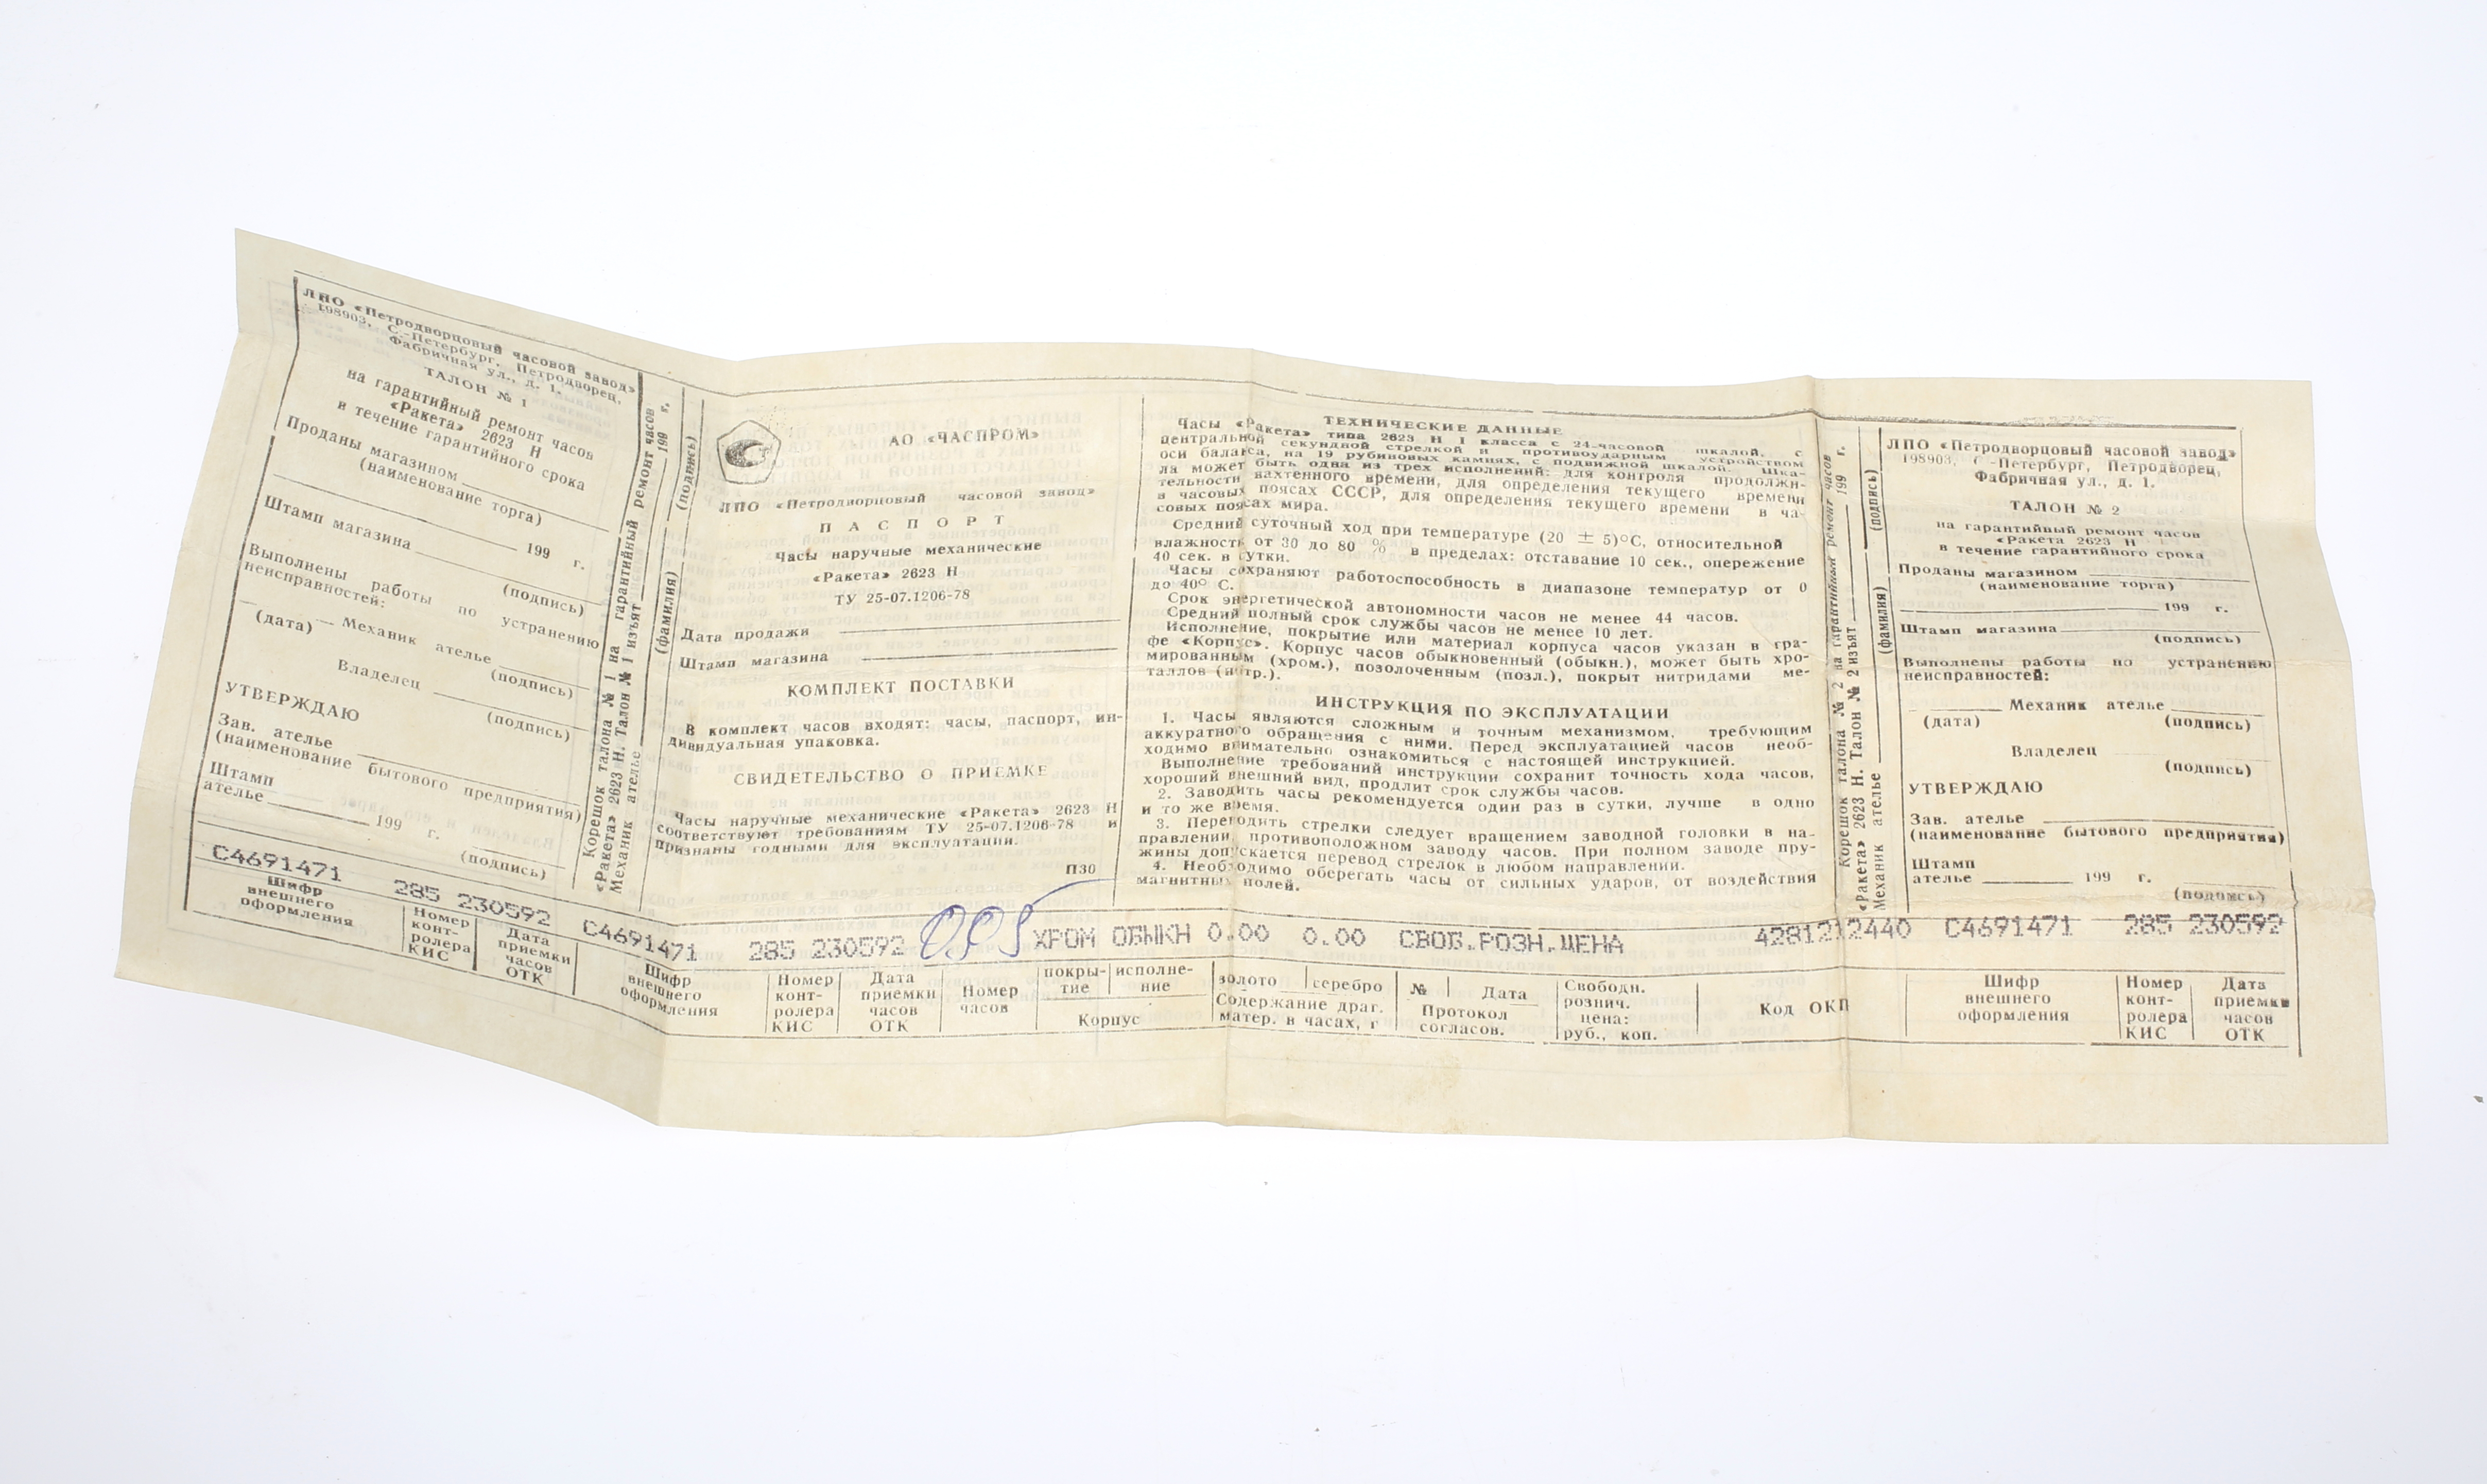 ЛПО «Петродворцовый часовой завод»
198903, С.-Петербург, Петродворец,
Фабричная ул., д. 1.
ТАЛОН № 1
на гарантийный ремонт часов
«Ракета» 2623 Н
в течение гарантийного срока
Проданы магазином
(наименование торга)
199 г.
Штамп магазина
(подпись)
Выполнены работы по устранению
неисправностей:
Механик ателье
(дата) (подпись)
Владелец
(подпись)
УТВЕРЖДАЮ
Зав. ателье
(наименование бытового предприятия)
Штамп
ателье 199 г.
(подпись)
С4691471 285 230592
Шифр внешнего оформления
Номер конт-ролера КИС
Дата приемки часов ОТК
Корешок талона № 1 на гарантийный ремонт часов
«Ракета» 2623 Н. Талон № 1 изъят 199 г.
Механик ателье
(фамилия) (подпись)
АО «ЧАСПРОМ»
ЛПО «Петродворцовый часовой завод»
ПАСПОРТ
Часы наручные механические
«Ракета» 2623 Н
ТУ 25-07.1206-78
Дата продажи
Штамп магазина
КОМПЛЕКТ ПОСТАВКИ
В комплект часов входят: часы, паспорт, ин-
дивидуальная упаковка.
СВИДЕТЕЛЬСТВО О ПРИЕМКЕ
Часы наручные механические «Ракета» 2623 Н
соответствуют требованиям ТУ 25-07.1206-78 и
признаны годными для эксплуатации.
П30
ТЕХНИЧЕСКИЕ ДАННЫЕ
Часы «Ракета» типа 2623 Н I класса с 24-часовой шкалой, с
центральной секундной стрелкой и противоударным устройством
оси баланса, на 19 рубиновых камнях, с подвижной шкалой. Шка-
ла может быть одна из трех исполнений: для контроля продолжи-
тельности вахтенного времени, для определения текущего времени
в часовых поясах СССР, для определения текущего времени в ча-
совых поясах мира.
Средний суточный ход при температуре (20 ± 5)°С, относительной
влажности от 30 до 80 % в пределах: отставание 10 сек., опережение
40 сек. в сутки.
Часы сохраняют работоспособность в диапазоне температур от 0
до 40° С.
Срок энергетической автономности часов не менее 44 часов.
Средний полный срок службы часов не менее 10 лет.
Исполнение, покрытие или материал корпуса часов указан в гра-
фе «Корпус». Корпус часов обыкновенный (обыкн.), может быть хро-
мированным (хром.), позолоченным (позл.), покрыт нитридами ме-
таллов (нитр.).
ИНСТРУКЦИЯ ПО ЭКСПЛУАТАЦИИ
1. Часы являются сложным и точным механизмом, требующим
аккуратного обращения с ними. Перед эксплуатацией часов необ-
ходимо внимательно ознакомиться с настоящей инструкцией.
Выполнение требований инструкции сохранит точность хода часов,
хороший внешний вид, продлит срок службы часов.
2. Заводить часы рекомендуется один раз в сутки, лучше в одно
и то же время.
3. Переводить стрелки следует вращением заводной головки в на-
правлении, противоположном заводу часов. При полном заводе пру-
жины допускается перевод стрелок в любом направлении.
4. Необходимо оберегать часы от сильных ударов, от воздействия
магнитных полей.
С4691471 285 230592 ХРОМ ОБЫКН 0.00 0.00 СВОБ.РОЗН.ЦЕНА 4281212440
Шифр внешнего оформления
Номер конт-ролера КИС
Дата приемки часов ОТК
Номер часов
покры-тие исполне-ние
Корпус
золото серебро
Содержание драг.
матер. в часах, г
№ Дата
Протокол согласов.
Свободн. рознич. цена: руб., коп.
Код ОКП
Корешок талона № 2 на гарантийный ремонт часов
«Ракета» 2623 Н. Талон № 2 изъят 199 г.
Механик ателье
(фамилия) (подпись)
ЛПО «Петродворцовый часовой завод»
198903, С-Петербург, Петродворец,
Фабричная ул., д. 1.
ТАЛОН № 2
на гарантийный ремонт часов
«Ракета 2623 Н
в течение гарантийного срока
Проданы магазином
(наименование торга)
199 г.
Штамп магазина
(подпись)
Выполнены работы по устранению
неисправностей:
Механик ателье
(дата) (подпись)
Владелец
(подпись)
УТВЕРЖДАЮ
Зав. ателье
(наименование бытового предприятия)
Штамп
ателье 199 г.
(подпись)
С4691471 285 230592
Шифр внешнего оформления
Номер конт-ролера КИС
Дата приемки часов ОТК